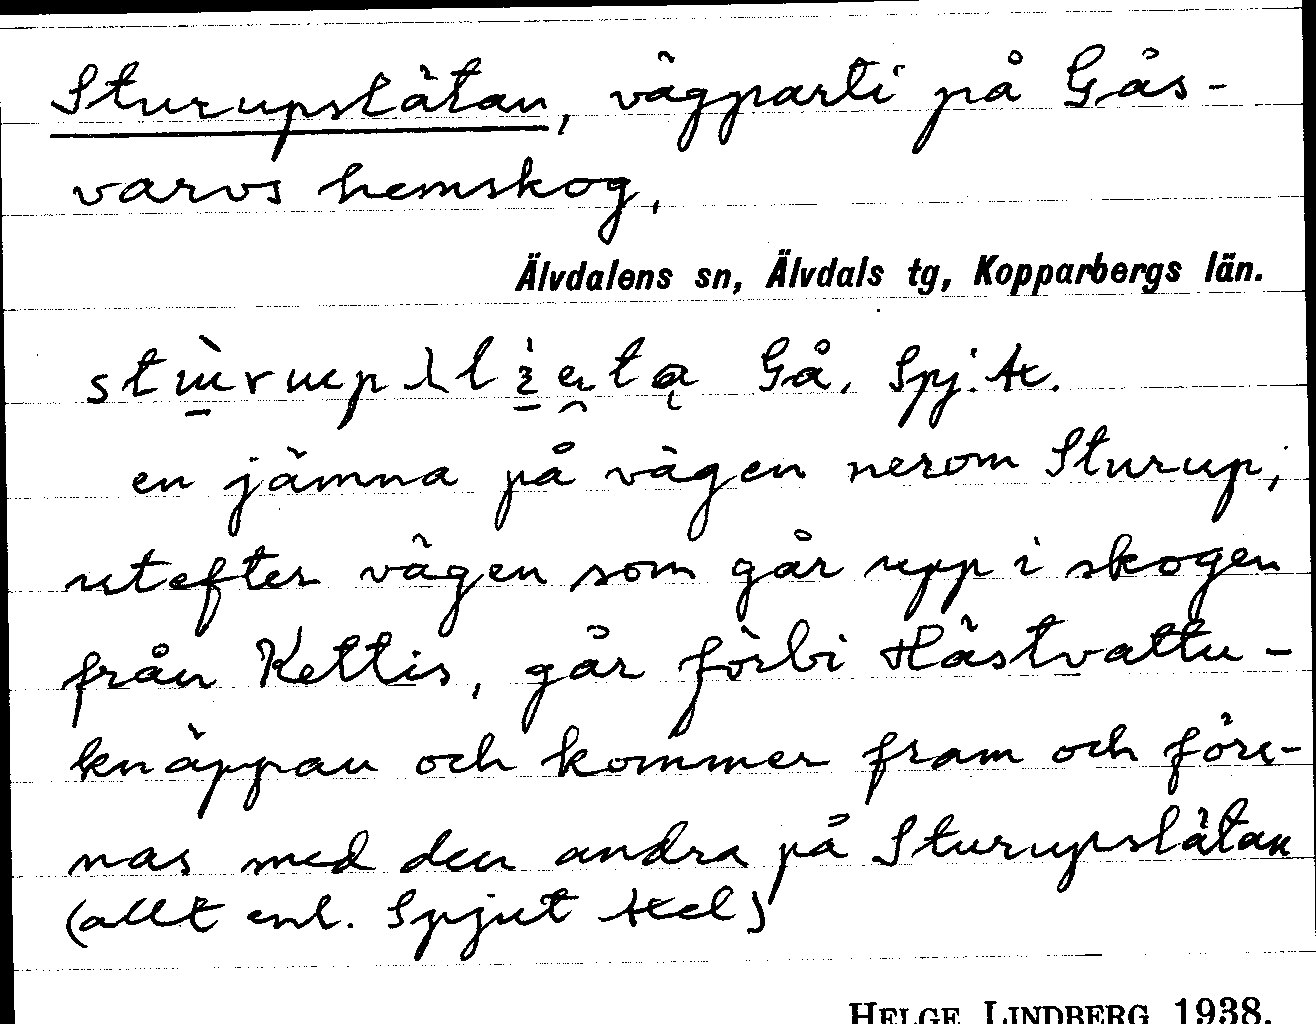 Sturupslätan, vägparti på Gås-
varvs hemskog,
Älvdalens sn, Älvdals tg, Kopparbergs län.
Gå. Spj. Ax.
en jämna på vägen nerom Sturup,
utefter vägen som går upp i skogen
från Kettis, går förbi Hästvattu-
knäppan och kommer fram och före-
nas med den andra på Sturupslätan
(allt enl. Spjut Axel)
HELGE LINDBERG 1938.